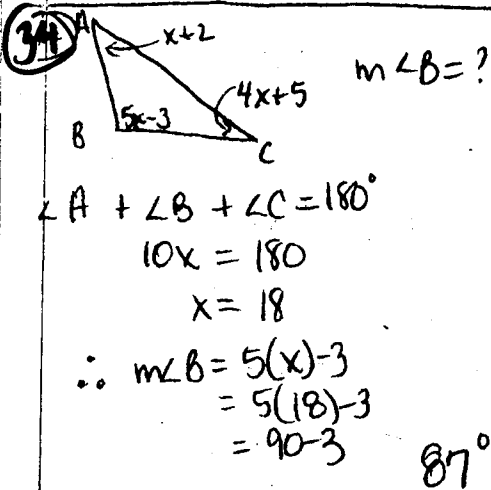 34
A
x+2
m∠B=?
4x+5
5x-3
B
C
∠A + ∠B + ∠C = 180°
10x = 180
x = 18
∴ m∠B = 5(x)-3
= 5(18)-3
= 90-3
87°